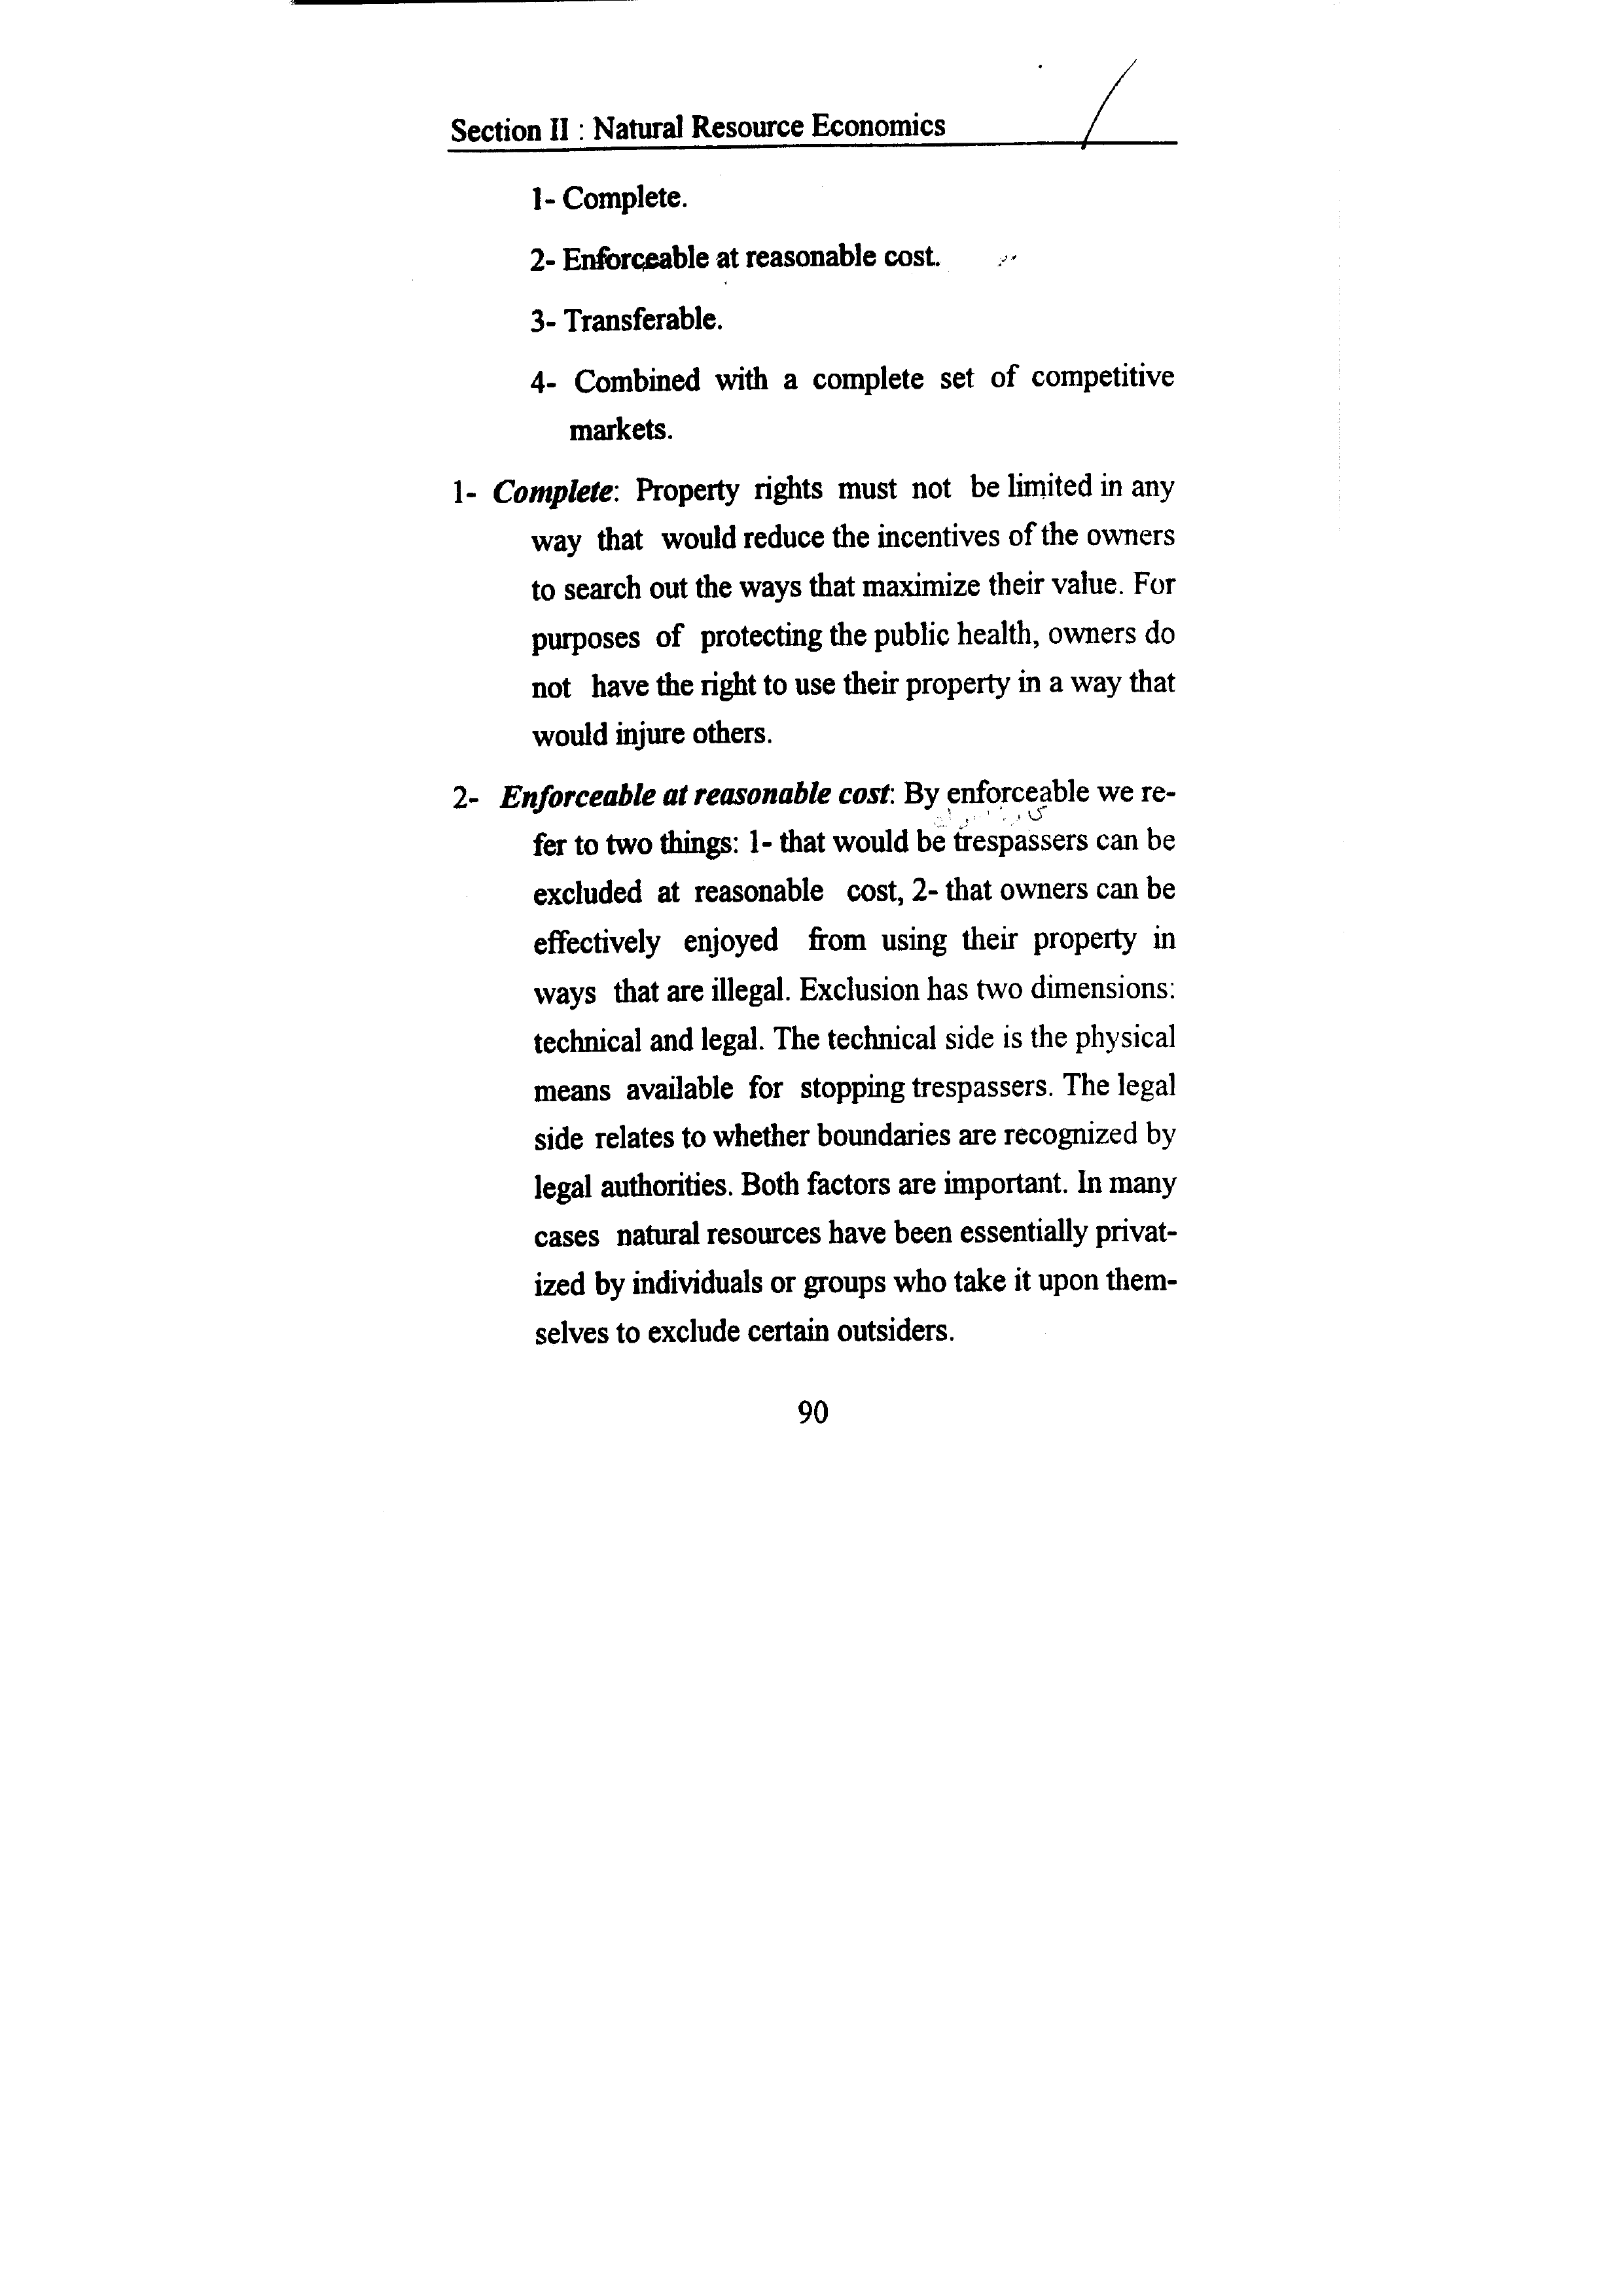 Section II : Natural Resource Economics
1- Complete.
2- Enforceable at reasonable cost.
3- Transferable.
4- Combined with a complete set of competitive
markets.
1- Complete: Property rights must not be limited in any
way that would reduce the incentives of the owners
to search out the ways that maximize their value. For
purposes of protecting the public health, owners do
not have the right to use their property in a way that
would injure others.
2- Enforceable at reasonable cost: By enforceable we re-
fer to two things: 1- that would be trespassers can be
excluded at reasonable cost, 2- that owners can be
effectively enjoyed from using their property in
ways that are illegal. Exclusion has two dimensions:
technical and legal. The technical side is the physical
means available for stopping trespassers. The legal
side relates to whether boundaries are recognized by
legal authorities. Both factors are important. In many
cases natural resources have been essentially privat-
ized by individuals or groups who take it upon them-
selves to exclude certain outsiders.
90